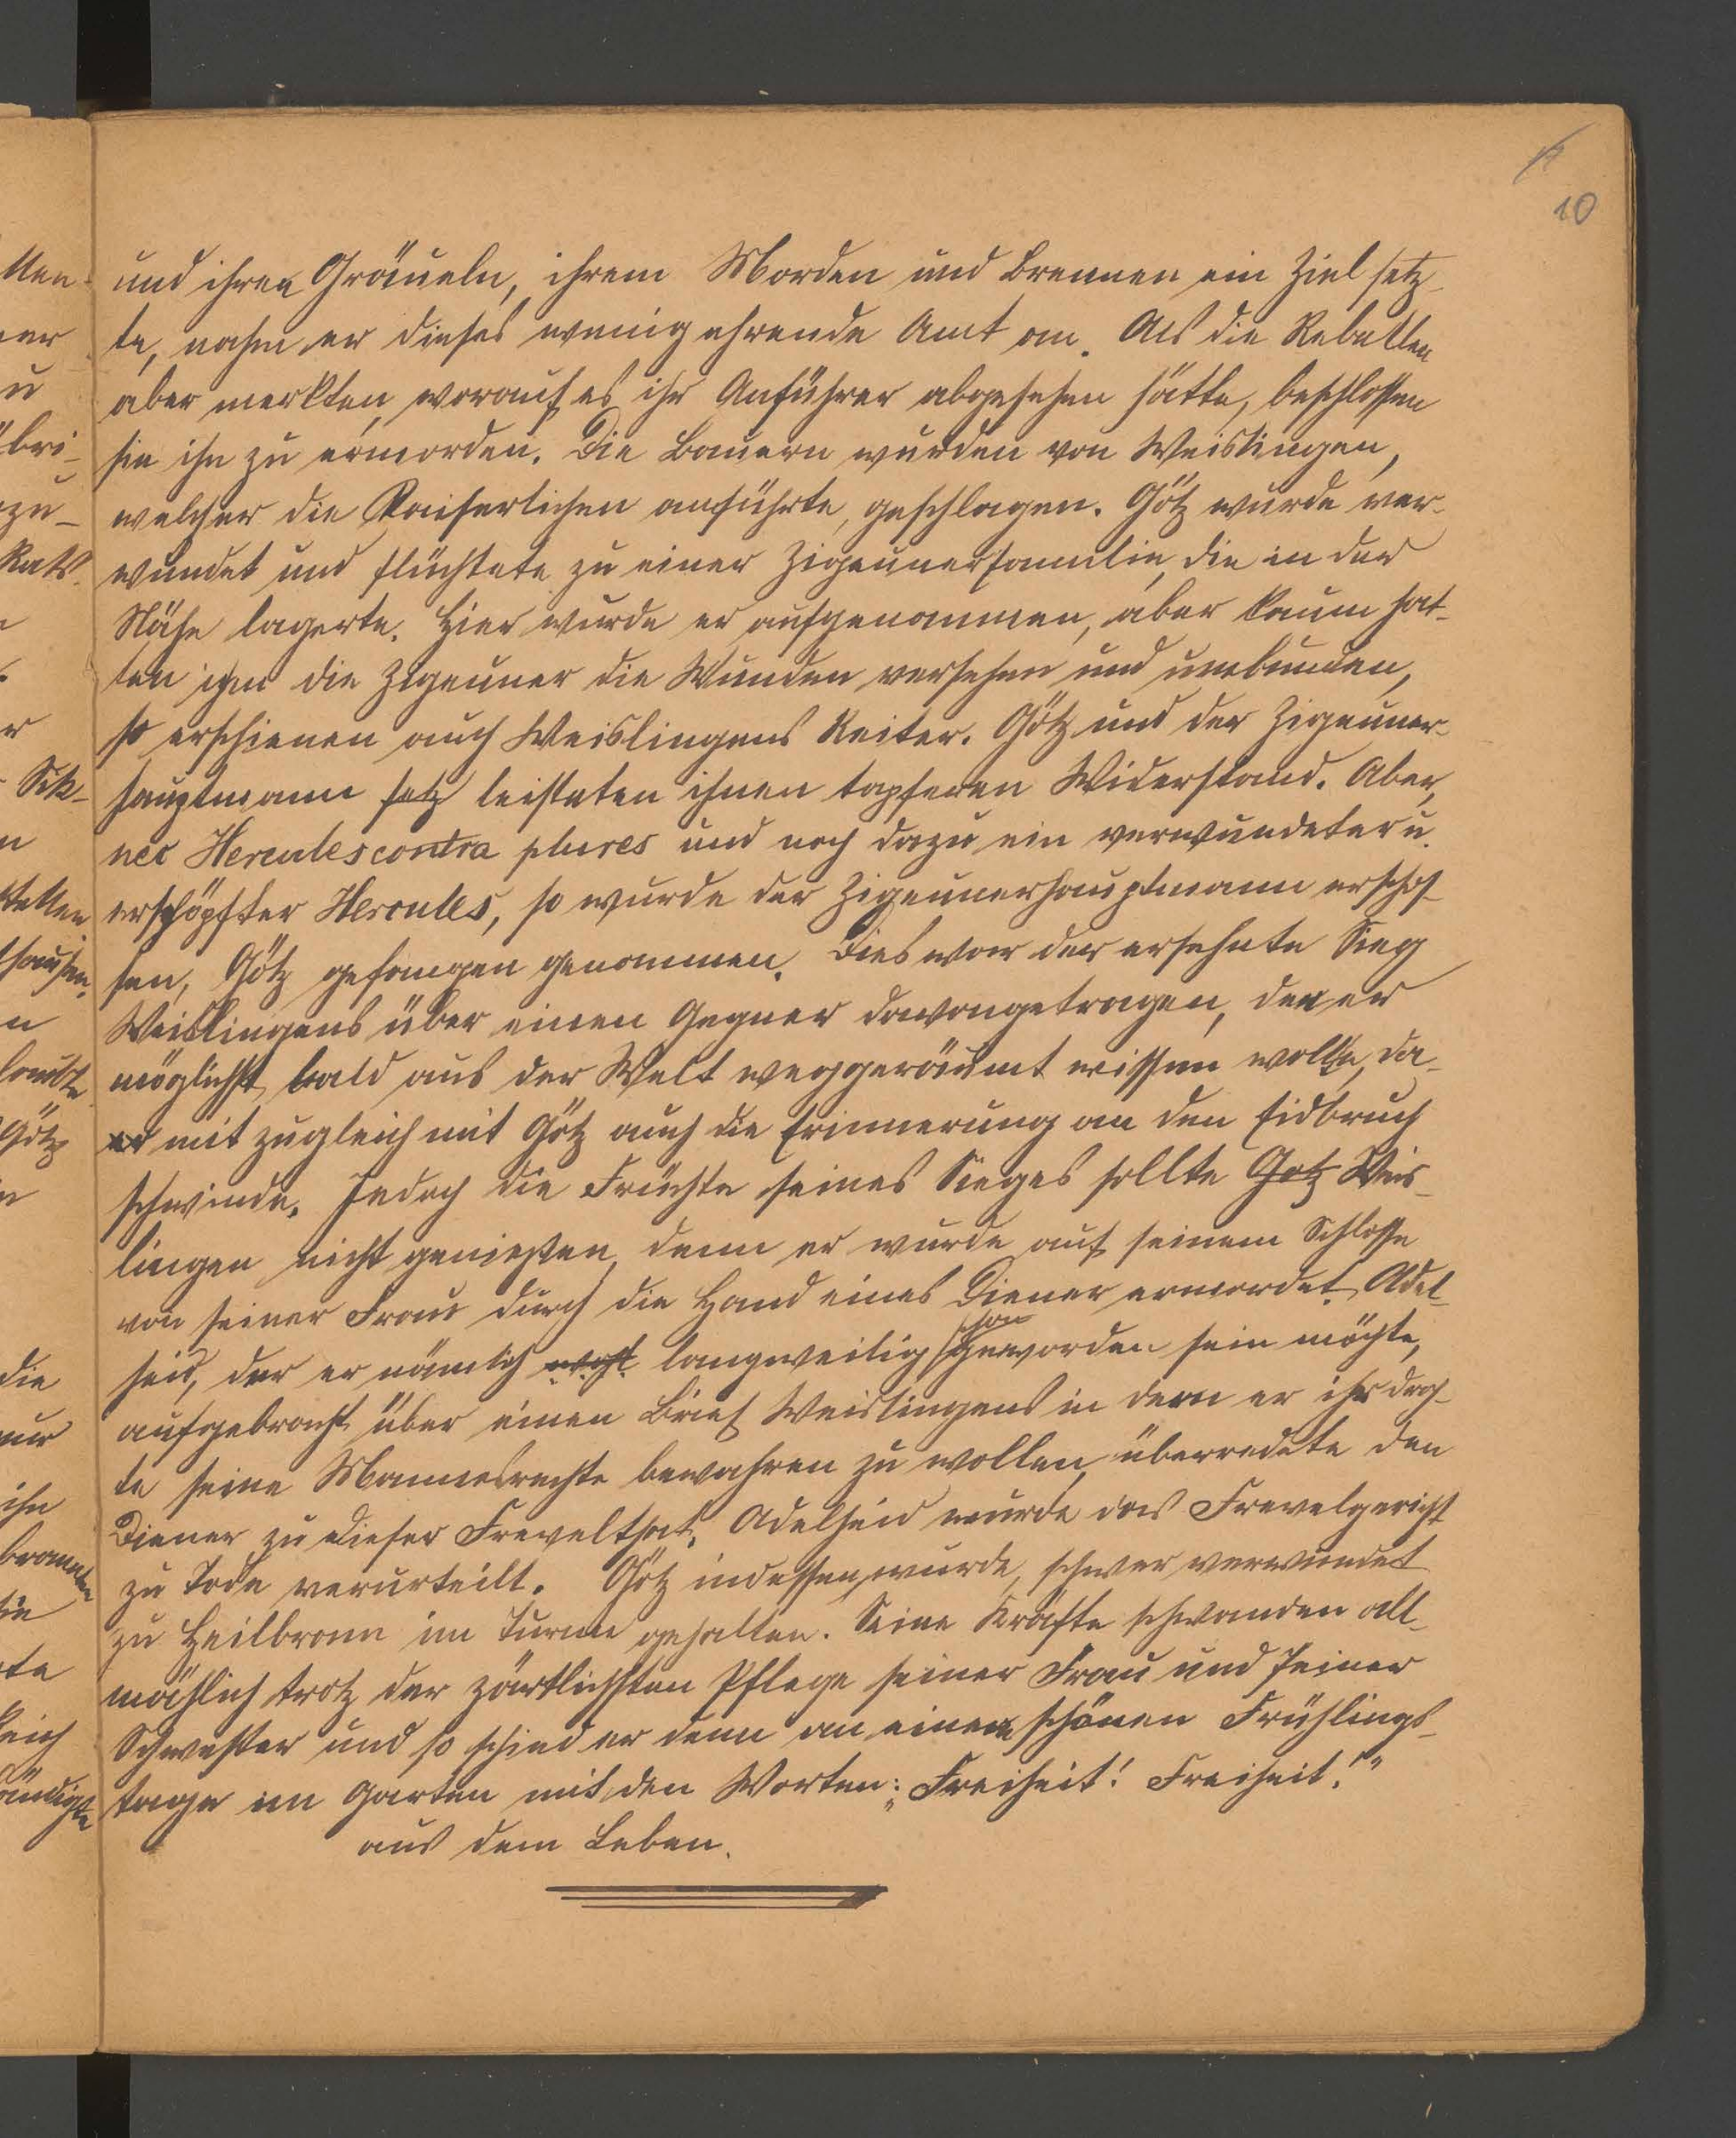 10
und ihren Gräueln, ihrem Morden und Brennen ein Ziel setz-
te, nahm er dieses wenig ehrende Amt an. Als die Rebellen
aber merkten, worauf es ihr Anführer abgesehen hätte, beschlossen
sie ihn zu ermorden. Die Bauern wurden von Weislingen,
welcher die Kaiserlichen anführte, geschlagen. Götz wurde ver-
wundet und flüchtete zu einer Zigeunerfamilie, die in der
Nähe lagerte. Hier wurde er aufgenommen, aber kaum hat-
ten ihm die Zigeuner die Wunden versehen und umbunden,
so erschienen auch Weislingens Reiter. Götz und der Zigeuner-
hauptmann setz leisteten ihnen tapferen Widerstand. Aber,
nec Hercules contra plures und noch dazu ein verwundeter u.
erschöpfter Hercules, so wurde der Zigeunerhauptmann erschos-
sen, Götz gefangen genommen. Dies war der ersehnte Sieg
Weislingens über einen Gegner davongetragen, den er
möglichst bald aus der Welt weggeräumt wissen wollte, da-
er mit zugleich mit Götz auch die Erinnerung an den Eidbruch
schwinde. Jedoch die Früchte seines Sieges sollte Götz Weis-
lingen nicht genießen, denn er wurde auf seinem Schlosse
von seiner Frau durch die Hand eines Diener ermordet. Adel-
schon
heid, der er nämlich wohl langweilig geworden sein möchte,
aufgebracht über einen Brief Weislingens in dem er ihr droh-
te seine Mannesrechte bewahren zu wollen, überredete den
Diener zu dieser Frevelthat. Adelheid wurde das Frevelgericht
zu Tode verurteilt. Götz indessen wurde, schwer verwundet
zu Heilbronn im Turme gehalten. Seine Kräfte schwanden all-
mählich trotz der zärtlichsten Pflege seiner Frau und seiner
Schwester und so schied er denn an einem schönen Frühlings-
tage im Garten mit den Worten: „Freiheit! Freiheit!"
aus dem Leben.